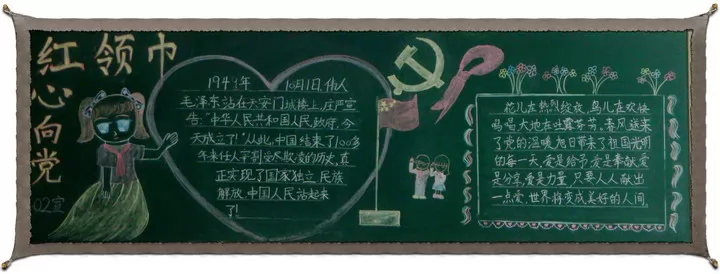 红领巾
心向党
02宣
1949年10月1日,伟人
毛泽东站在天安门城楼上,庄严宣
告:"中华人民共和国人民政府,今
天成立了!"从此,中国结束了100多
年来任人宰割受尽欺凌的历史,真
正实现了国家独立 民族
解放,中国人民站起来
了!
花儿在热烈绽放,鸟儿在欢快
鸣唱,大地在吐露芬芳。春风送来
了党的温暖,旭日带来了祖国光明
的每一天,爱是给予,爱是奉献,爱
是分享,爱是力量,只要人人献出
一点爱,世界将变成美好的人间。